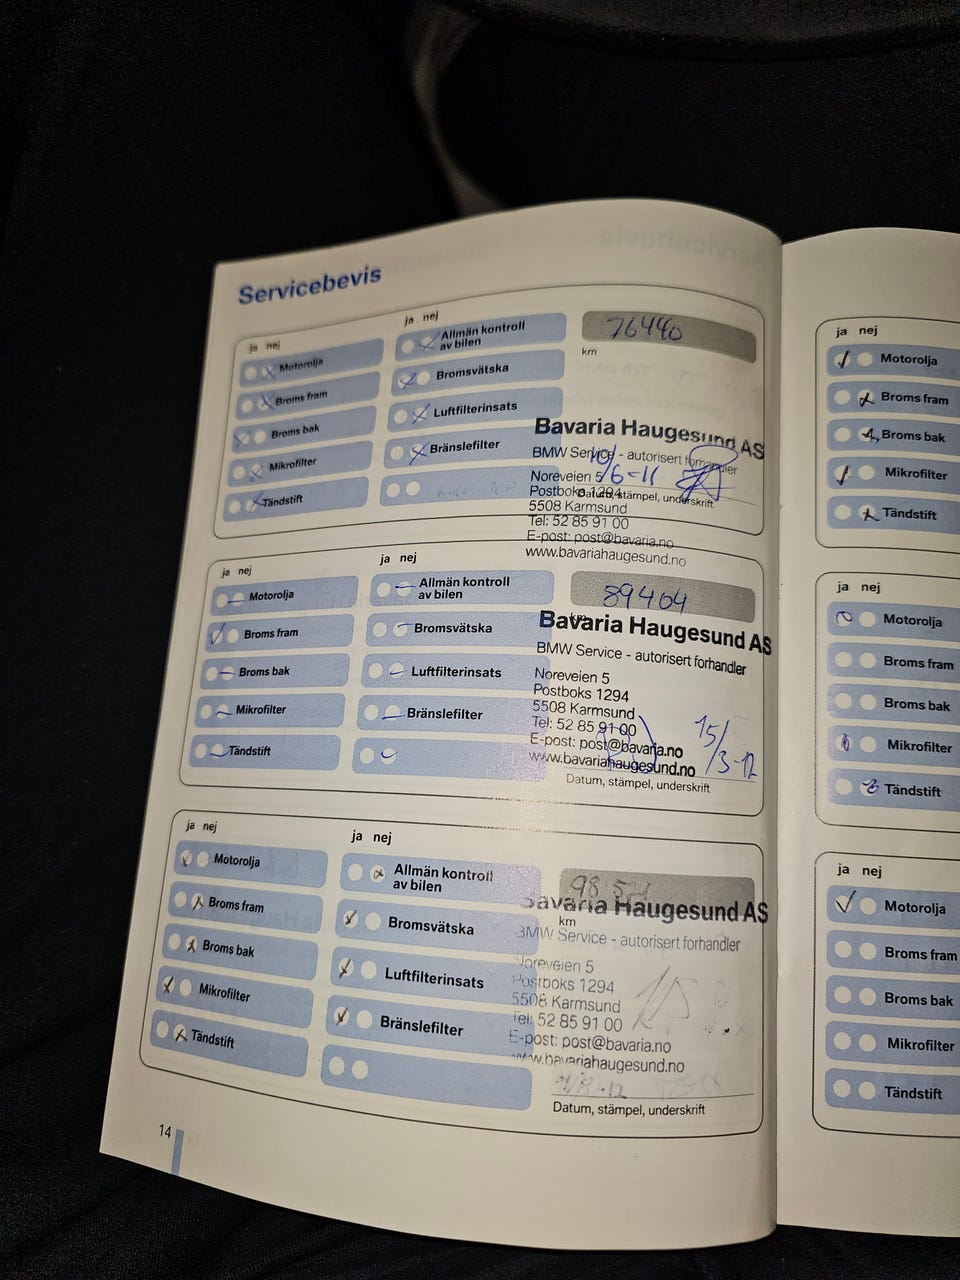 Servicebevis
ja nej
Motorolja
Broms fram
Broms bak
Mikrofilter
Tändstift
ja nej
Allmän kontroll
av bilen
Bromsvätska
Luftfilterinsats
Bränslefilter
76440
km
Bavaria Haugesund AS
BMW Service - autorisert forhandler
Noreveien 5
Postboks 1294
5508 Karmsund
Tel: 52 85 91 00
E-post: post@bavaria.no
www.bavariahaugesund.no
10/6-11
Datum, stämpel, underskrift
ja nej
Motorolja
Broms fram
Broms bak
Mikrofilter
Tändstift
ja nej
Allmän kontroll
av bilen
Bromsvätska
Luftfilterinsats
Bränslefilter
89404
km
Bavaria Haugesund AS
BMW Service - autorisert forhandler
Noreveien 5
Postboks 1294
5508 Karmsund
Tel: 52 85 91 00
E-post: post@bavaria.no
www.bavariahaugesund.no
15/3-12
Datum, stämpel, underskrift
ja nej
Motorolja
Broms fram
Broms bak
Mikrofilter
Tändstift
ja nej
Allmän kontroll
av bilen
Bromsvätska
Luftfilterinsats
Bränslefilter
km
Bavaria Haugesund AS
BMW Service - autorisert forhandler
Noreveien 5
Postboks 1294
5508 Karmsund
Tel: 52 85 91 00
E-post: post@bavaria.no
www.bavariahaugesund.no
Datum, stämpel, underskrift
14
ja nej
Motorolja
Broms fram
Broms bak
Mikrofilter
Tändstift
ja nej
Motorolja
Broms fram
Broms bak
Mikrofilter
Tändstift
ja nej
Motorolja
Broms fram
Broms bak
Mikrofilter
Tändstift